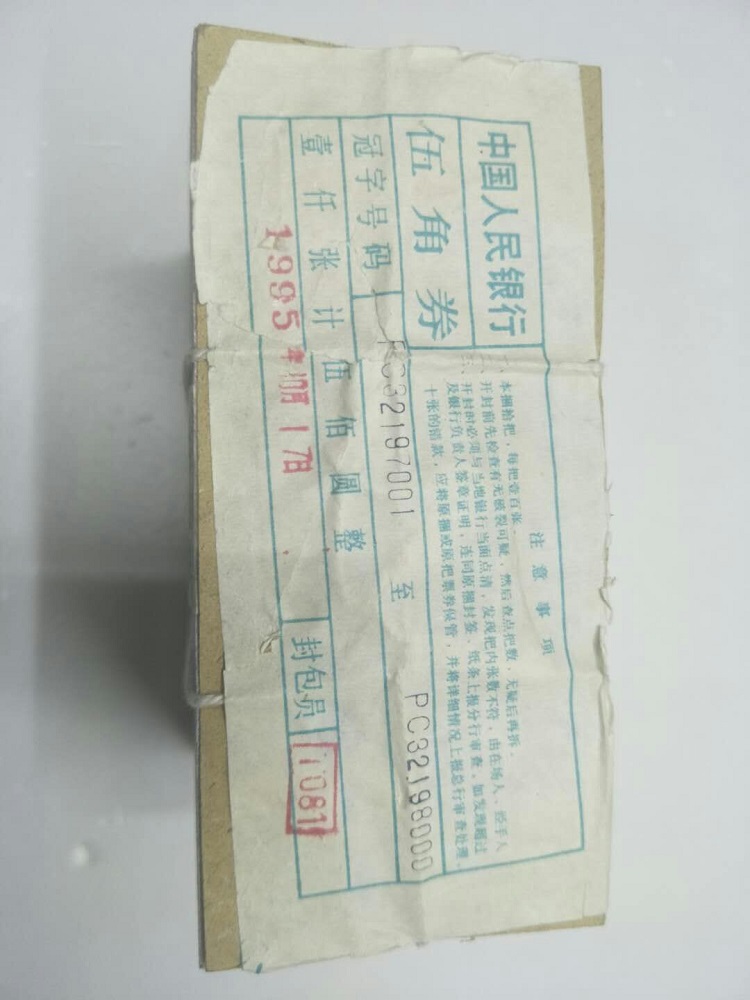 中国人民银行
伍角券
冠字号码
PC32197001 至 PC32198000
壹仟张计伍佰圆整
1995年10月17日
封包员
1081
注意事项
一、本捆拾把，每把壹百张。
二、开封前先检查有无破裂可疑，然后查点把数，无疑后再拆。
三、开封时必须与当地银行当面点清，发现把内张数不符，由在场人、经手人
及银行负责人签章证明，连同原捆封签、纸条上报分行审查，如发现超过
十张的错款，应将原捆或原把票券保管，并将详细情况上报总行审查处理。